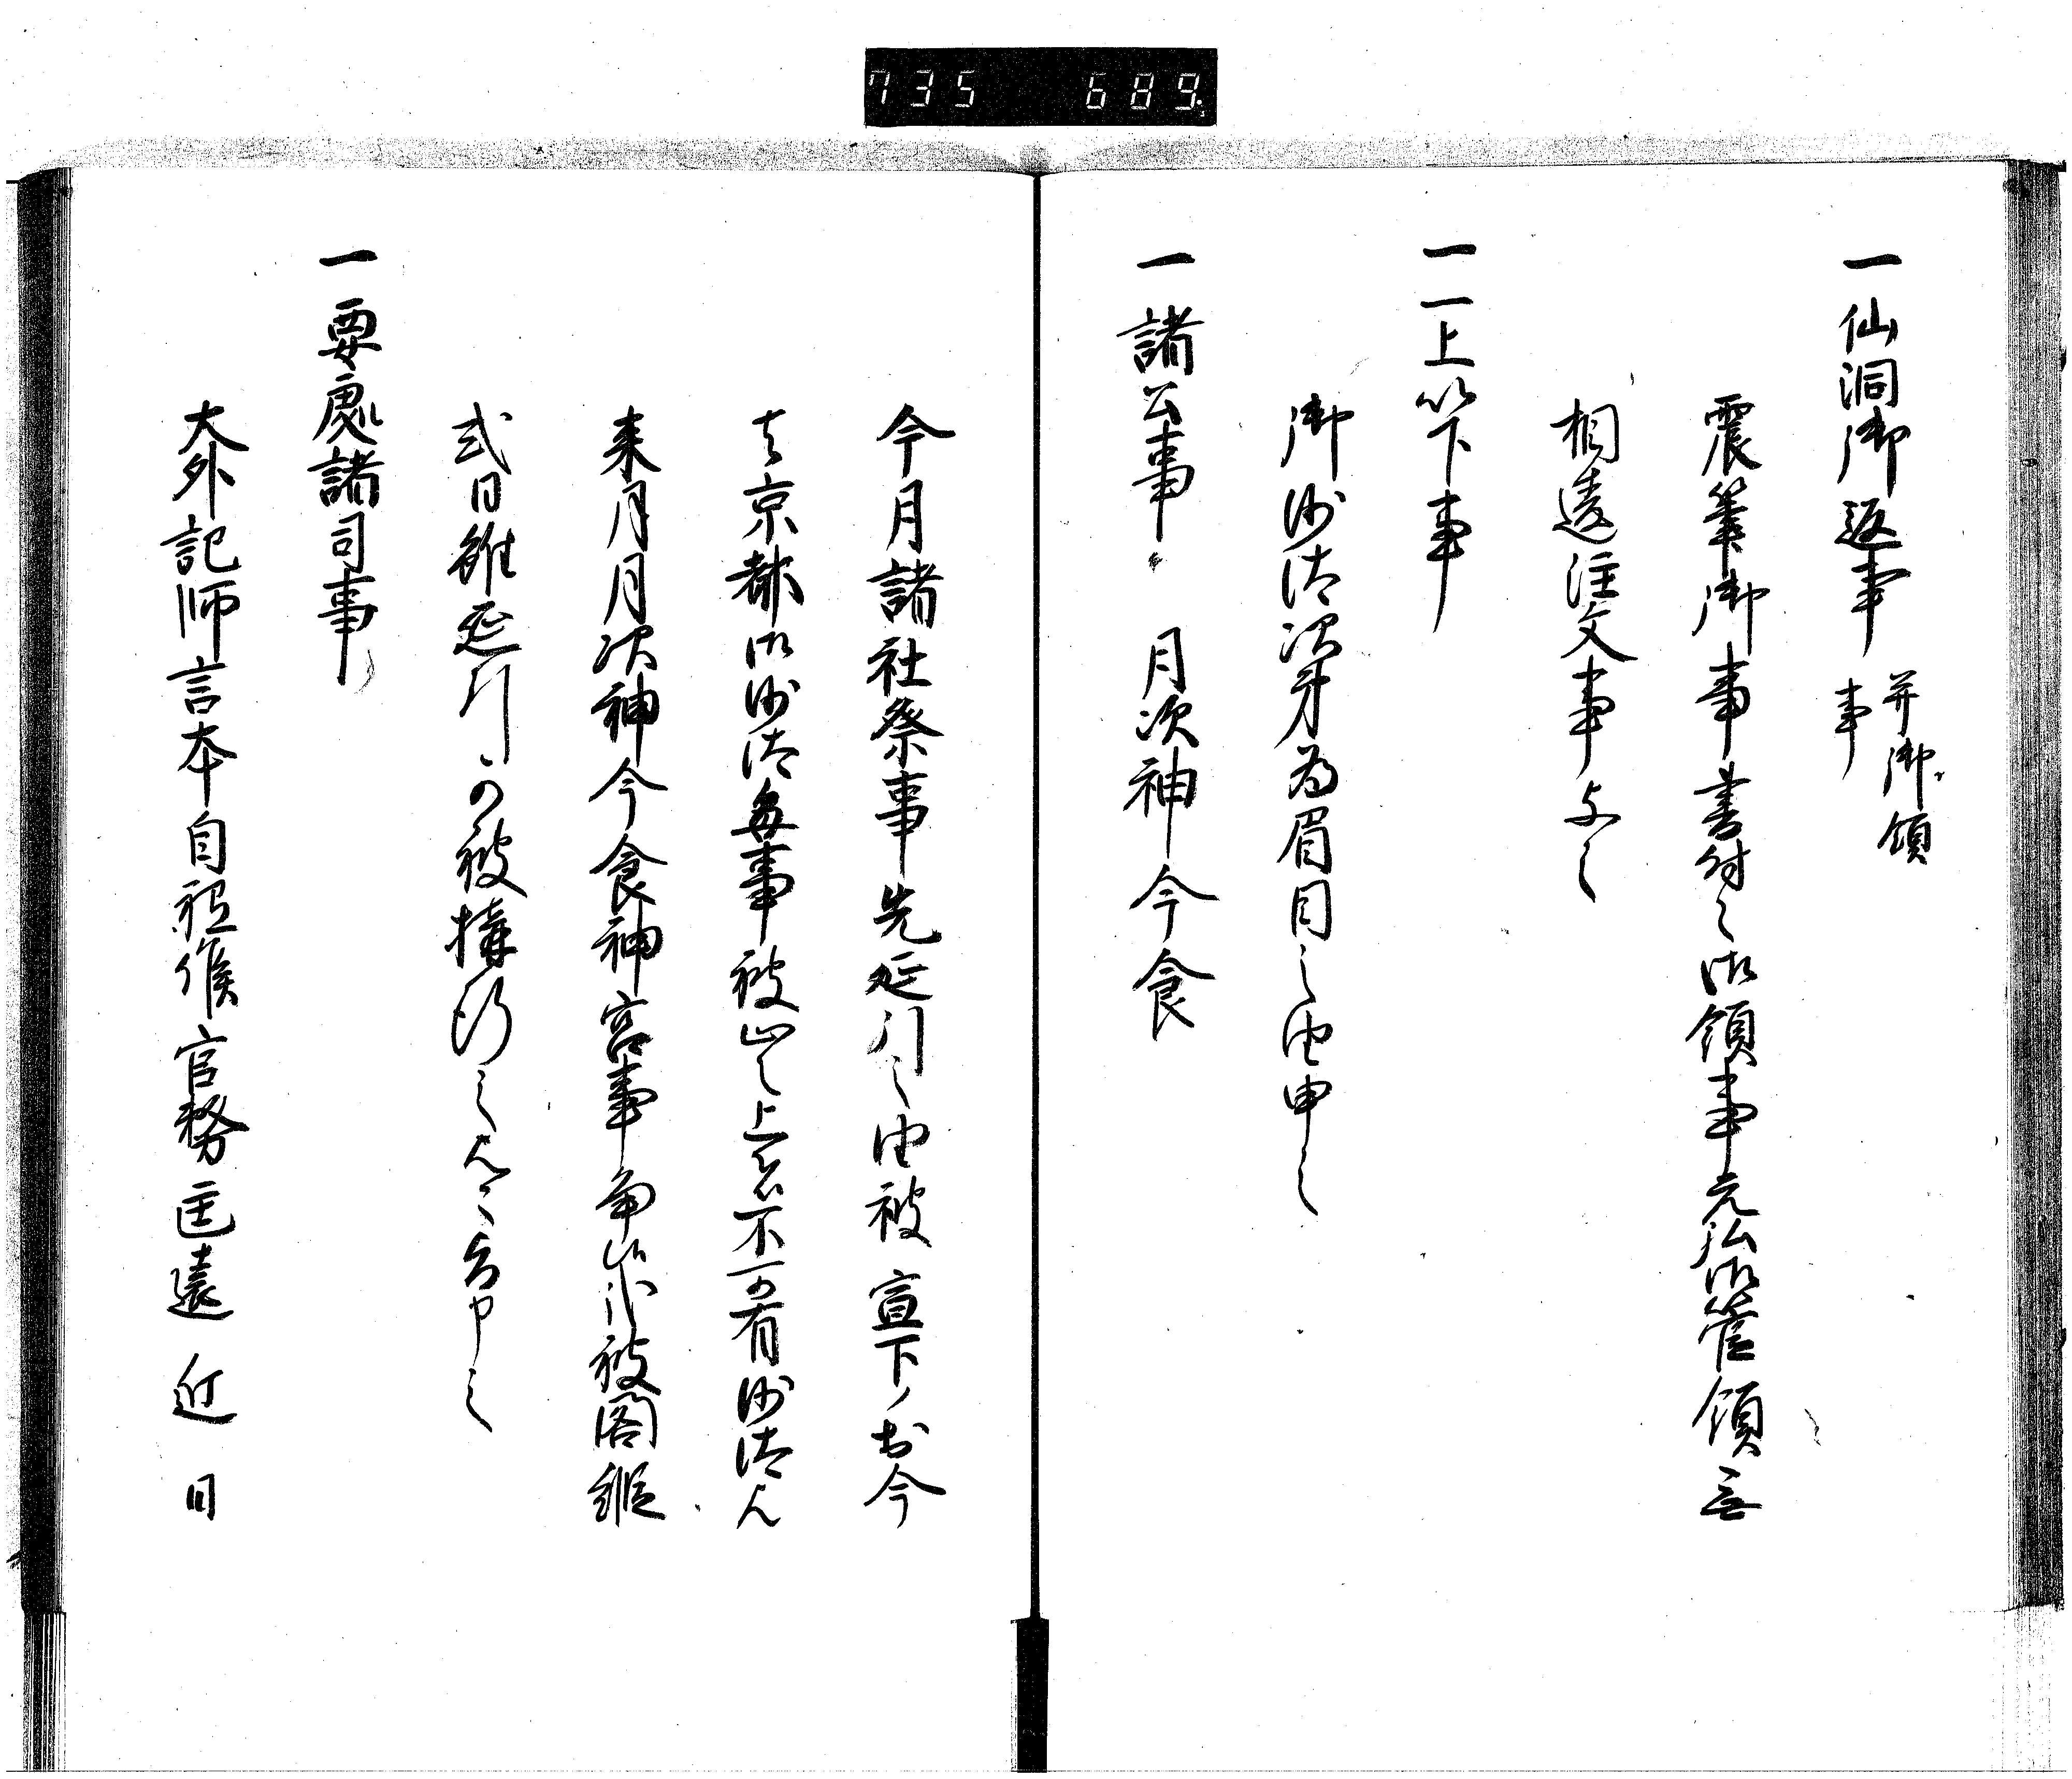 735 689
一仙洞御返事 并御領
事
震筆御事書付之御領事元弘御管領無
相違注文事与之
一一上以下事
御沙汰次第為眉目之由申之
一諸公事 月次神今食
今月諸社祭事先延引之由被宣下了於今
者京都御沙汰毎事被止之上者不可有沙汰候
来月月次神今食神宮事争此外被閣縦
式日雖延引可被構行之
一要処諸司事
大外記師言本自祗候官務匡遠近日